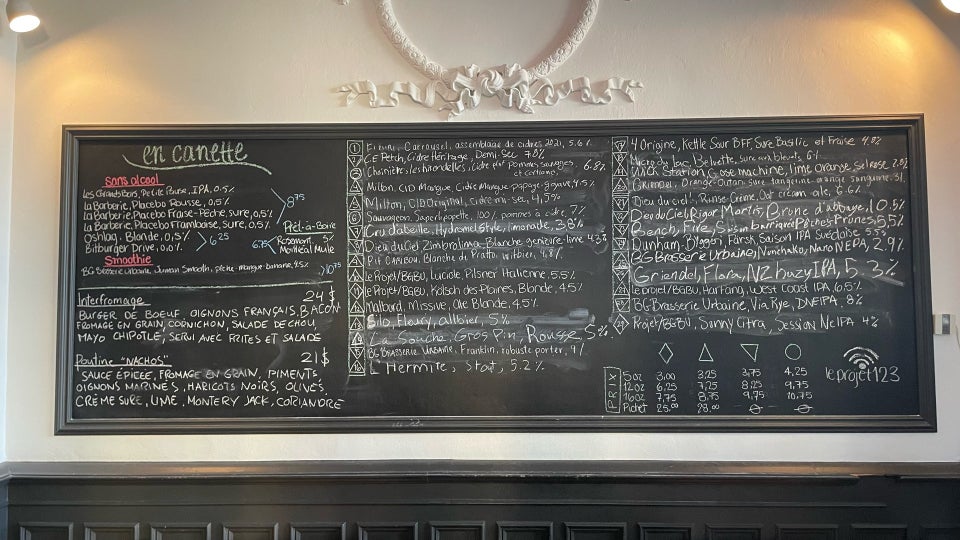 en canette
sans alcool
Les Grands Bois, Petite Pause, IPA, 0.5%
La Barberie, Placebo Rousse, 0,5%
La Barberie, Placebo Fraise-Pêche, sure, 0,5%
La Barberie, Placebo Framboise, sure, 0,5%
8.75
Oshlag, Blonde, 0,5%
Bitburger Drive, 0.0%
6.25
Prêt-à-Boire
Rosemont 5%
Montréal Mule
6.75
Smoothie
BG Brasserie Urbaine, Smooth, pêche-mangue-banane, 4.5%
10.75
Interfromage 24$
BURGER DE BOEUF, OIGNONS FRANÇAIS, BACON
FROMAGE EN GRAIN, CORNICHON, SALADE DE CHOU,
MAYO CHIPOTLE, SERVI AVEC FRITES ET SALADE
Poutine "NACHOS" 21$
SAUCE ÉPICÉE, FROMAGE EN GRAIN, PIMENTS,
OIGNONS MARINÉS, HARICOTS NOIRS, OLIVES,
CRÈME SURE, LIME, MONTERY JACK, CORIANDRE
1 Carrousel, assemblage de cidres 2021, 5.6%
CE Petch, Cidre Héritage, Demi-Sec 7.0%
pommes sauvages 6.8%
Milton, CID Mangue, Cidre Mangue-papaye-goyave, 4.5%
Milton, CID Original, cidre mi-sec, 4,5%
Sauvageon, Superpépette, 100% pommes à cidre, 7%
Cru d'abeille, Hydromel style, limonade, 3.8%
Dieu du Ciel Zimbralima, Blanche genièvre-lime 4.3%
Pit CARIBOU, Blanche de Pratto, witbier, 4.8%
le Projet/BGBU, Luciole, Pilsner Italienne, 5.5%
le Projet/BGBU, Kölsch des Plaines, Blonde, 4.5%
Malbord, Missive, Ale Blonde, 4.5%
Silo, Fleury, altbier, 5%
La Souche, Gros Pin, Rousse, 5%
BG BRASSERIE URBAINE, Franklin, robuste porter, 4%
L'Hermite, Stout, 5.2%
4 Origines, Kettle Sour BFF, Sure Basilic et Fraise 4.8%
Micro du Lac, Beluette, sure aux bleuets, 6%
Station, Gose machine, lime orange Sel rose, 2.8%
Griendel, Orange-Outan, sure tangerine, orange sanguine, 5%
Dieu du ciel!, Crème, Oat cream ale, 6.6%
Dieu du Ciel, Rigor Mortis, Brune d'abbaye, 10.5%
Bench, Fire, Saison barrique Pêches-Prunes, 5,5%
Dunham, Blagon, Farsk, Saison IPA Suédoise 5.5%
BG Brasserie Urbaine, Nunchako, Nano NEPA, 2.9%
Griendel, Flora, NZ hazy IPA, 5.3%
le projet/BGBU, Harfang, West Coast IPA 6.5%
BG Brasserie Urbaine, Via Rye, DNEIPA, 8%
Projet/BGBU, Sunny Citra, Session NeIPA 4%
PRIX
5oz 3,00 3,25 3,75 4,25
12oz 6,25 7,25 8,25 9,75
16oz 7,75 8,75 9,75 10,75
Pichet 25.00 28.00
le projet123